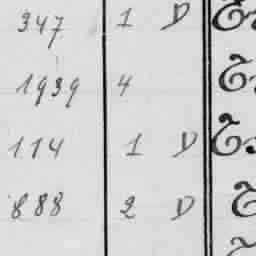 347 1 D
1939 4
114 1 D
888 2 D